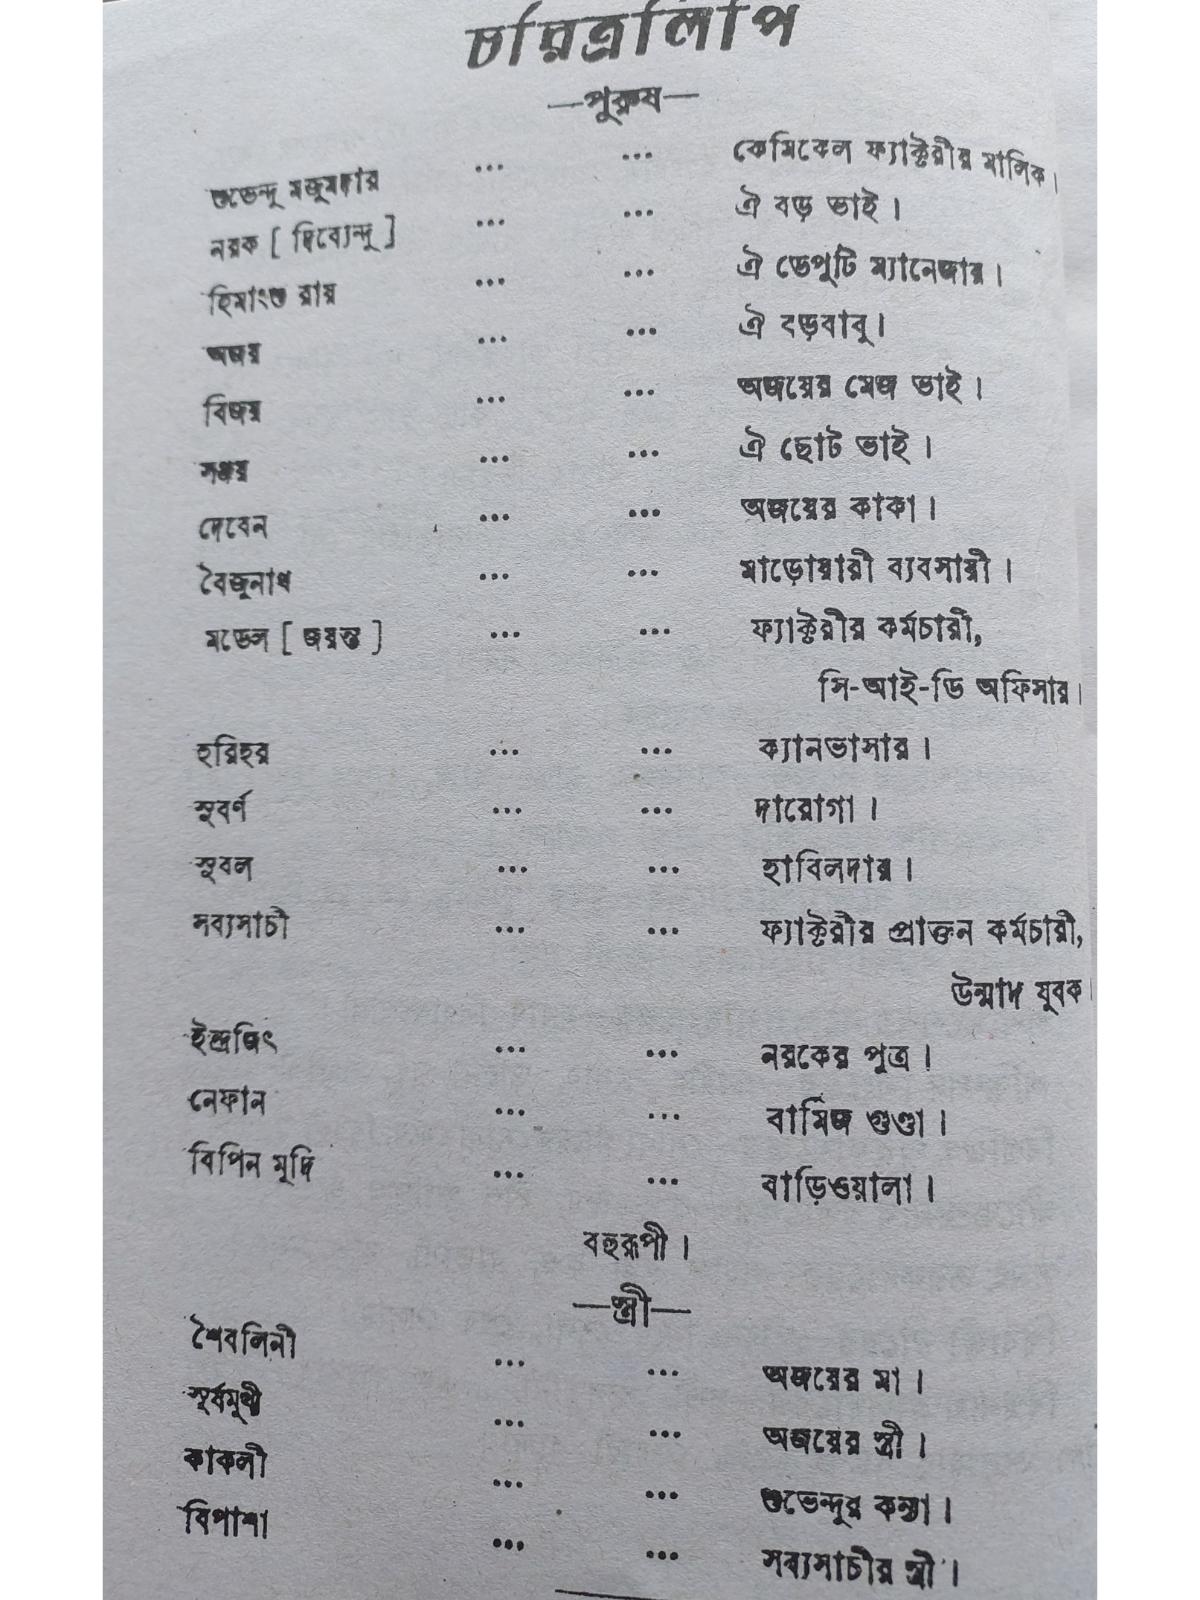 চরিত্রলিপি
—পুরুষ—
শুভেন্দু মজুমদার ... ... কেমিকেল ফ্যাক্টরীর মালিক।
নরক [ দিব্যেন্দু ] ... ... ঐ বড় ভাই।
হিমাংশু রায় ... ... ঐ ডেপুটি ম্যানেজার।
অজয় ... ... ঐ বড়বাবু।
বিজয় ... ... অজয়ের মেজ ভাই।
সঞ্জয় ... ... ঐ ছোট ভাই।
দেবেন ... ... অজয়ের কাকা।
বৈজুনাথ ... ... মাড়োয়ারী ব্যবসায়ী।
মণ্ডেল [ জয়ন্ত ] ... ... ফ্যাক্টরীর কর্মচারী,
সি-আই-ডি অফিসার।
হরিহর ... ... ক্যানভাসার।
সুবর্ণ ... ... দারোগা।
সুবল ... ... হাবিলদার।
সব্যসাচী ... ... ফ্যাক্টরীর প্রাক্তন কর্মচারী,
উন্মাদ যুবক।
ইন্দ্রজিৎ ... ... নরকের পুত্র।
নেফান ... ... বার্মিজ গুণ্ডা।
বিপিন মুদি ... ... বাড়িওয়ালা।
বহুরূপী।
—স্ত্রী—
শৈবলিনী ... ... অজয়ের মা।
সূর্যমুখী ... ... অজয়ের স্ত্রী।
কাকলী ... ... শুভেন্দুর কন্যা।
বিপাশা ... ... সব্যসাচীর স্ত্রী।